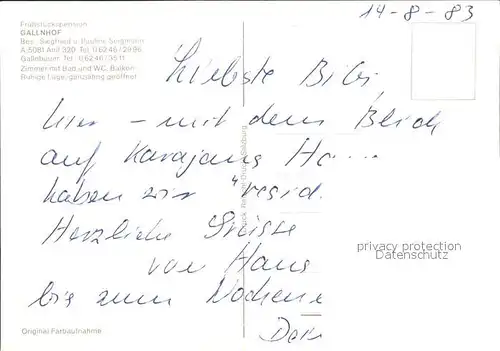 14-8-83
Frühstückspension
GALLNHOF
Bes. Siegfried u. Pauline Siegmann
A-5081 Anif 320 Tel. 0 62 46 / 29 96
Gallnbauer Tel. 0 62 46 / 35 11
Zimmer mit Bad und WC, Balkon
Ruhige Lage, ganzjährig geöffnet
Liebste Bibi,
hier - mit dem Blick
auf Karajans Ha...
haben wir "resid.
Herzliche Grüsse
von Hans
bis zum Wochene
Dein
Druck Salzburg
privacy protection
Datenschutz
Original Farbaufnahme